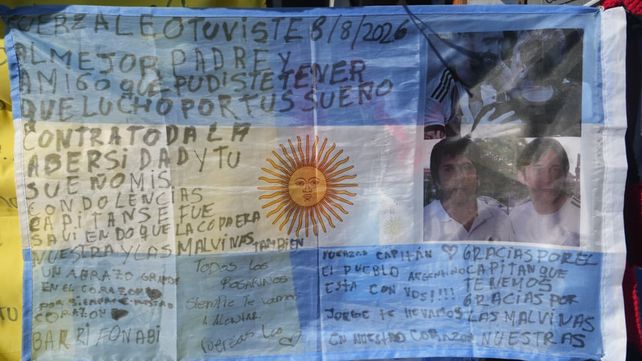 FUERZA LEO TUVISTE 8/8/2026
AL MEJOR PADRE Y
AMIGO QUE PUDISTE TENER
QUE LUCHO POR TUS SUEÑO
CONTRA TODA LA
ABERSIDAD Y TU
SUEÑO MIS
CONDOLENCIAS
CAPITAN SE FUE
SAVIENDO QUE LA COPA ERA
NUESTRA Y LAS MALVINAS TAMBIEN
UN ABRAZO GRANDE
EN EL CORAZO
CORAZON
BARRI FONABI
TODOS LOS
ROSARINOS
SIEMPRE TE
A ALENTAR
FUERZAS LEO
FUERZAS CAPITÁN
EL PUEBLO ARGENTINO
ESTA CON VOS!!!!
JORGE TE LLEVAMOS
EN NUESTRO CORAZON
GRACIAS POR EL
CAPITAN QUE
TENEMOS
GRACIAS POR
LAS MALVINAS
NUESTRAS